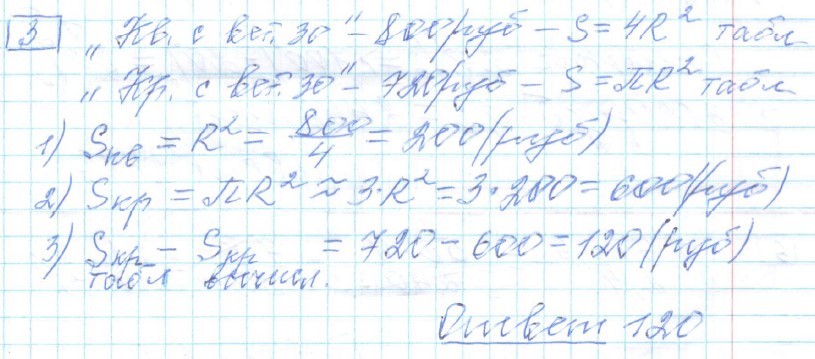 3 „Кв. с вет. 30" – 800 руб – S = 4R² табл
„Кр. с вет. 30" – 720 руб – S = πR² табл
1) Sкв = R² = 800/4 = 200 (руб)
2) Sкр = πR² ≈ 3·R² = 3·200 = 600 (руб)
3) Sкр табл – Sкр вычисл. = 720 – 600 = 120 (руб)
Ответ 120